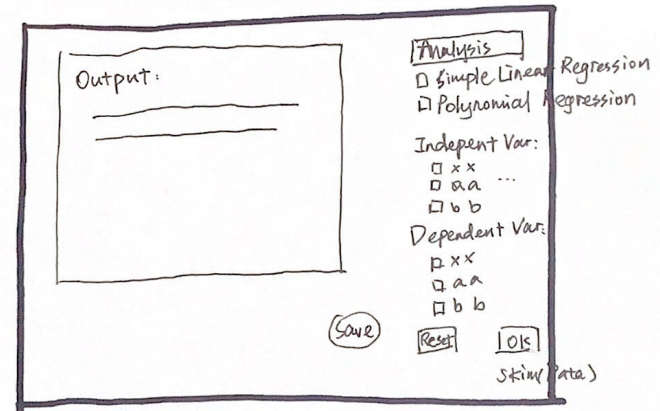 Output:
Analysis
Simple Linear Regression
Polynomial Regression
Indepent Var:
xx
aa ...
bb
Dependent Var:
xx
aa
bb
Save
Reset
Ok
Skim(Data)